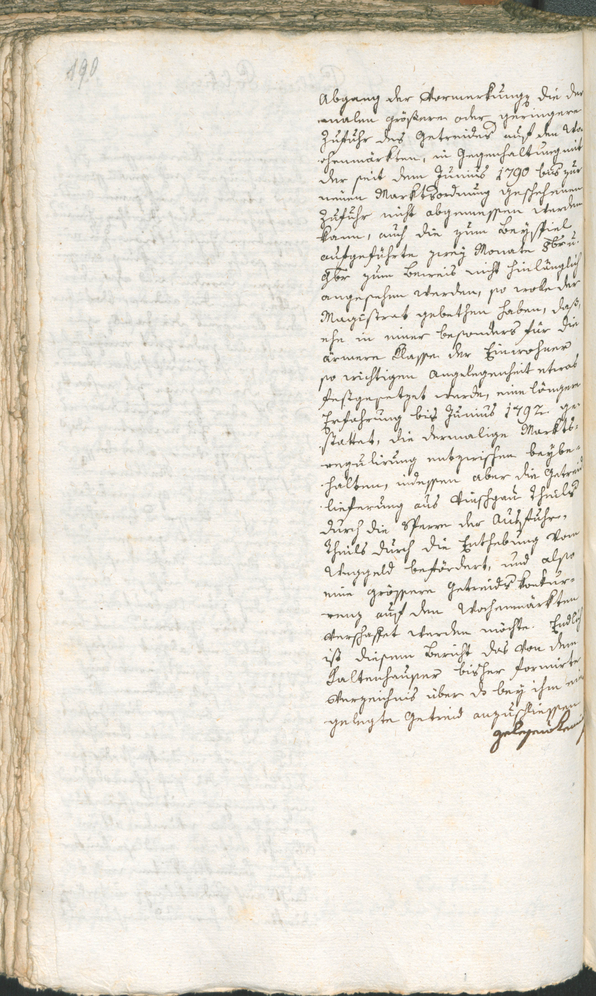 190
Abgang der Vormerkungen die der-
malen größere oder geringere
Zufuhr des Getreides auf den Wo-
chenmärkten, in Gegenhaltung mit
der seit dem Junius 1790 bis zur
neuen Marktsordnung geschehenen
Zufuhr nicht abgemessen werden
kann, auch die zum Beyspiel
aufgeführte zwey Monate 8br u.
9br zum Beweis nicht hinlänglich
angesehen werden, so wolle der
Magistrat gebethen haben, daß,
ehe in einer besonders für die
ärmere Klasse der Einwohner
so wichtigen Angelegenheit etwas
festgesetzet werde, eine längere
Erfahrung bis Junius 1792 ge-
stattet, die dermalige Markts-
regulirung entzwischen beybe-
halten, indessen aber die Getreid
lieferung aus Vinschgau theils
durch die Sperre der Ausfuhr,
theils durch die Enthebung vom
Weggeld befördert, und also
eine grössere Getreids Konkur-
renz auf den Wochenmärkten
verschaffet werden möchte. Endlich
ist diesem Bericht das von dem
Kaltenhauser bisher formirte
Verzeichnis über das bey ihm ein
gelegte Getreid anzuschliessen